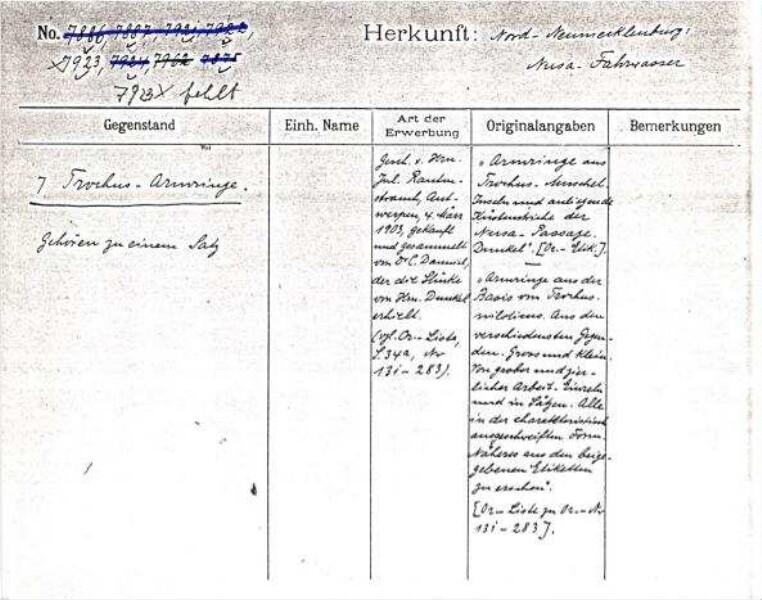 No. 7886, 7887, 7921, 7922,
×7923, 7924, 7962 7875
7923× fehlt
Herkunft: Nord-Neumecklenburg;
Nusa-Fahrwasser
Gegenstand
Einh. Name
Art der
Erwerbung
Originalangaben
Bemerkungen
7 Trochus-Armringe.
Gehören zu einem Satz
Gesch. v. Hrn.
Jul. Rauten-
strauch, Ant-
werpen, 4. März
1903, gekauft
und gesammelt
von Dr C.
der die Stücke
von Hrn. Dunkel
erhielt.
(vgl. Or.-Liste,
S. 34a, No
13i-283).
"Armringe aus
Trochus-Muschel.
Inseln und anliegende
der
Nusa-Passage.
Dunkel". [Or.-Etik.].
"Armringe aus der
Basis von Trochus
niloticus. Aus den
verschiedensten Gegen-
den. Gross und klein.
Von grober und zier-
licher Arbeit. Einzeln
und in Sätzen. Alle
in der charakteristisch
ausgeschweiften Form.
Näheres aus den beige-
gebenen Etiketten
zu ersehen".
[Or.-Liste zu Or.-No
13i-283].